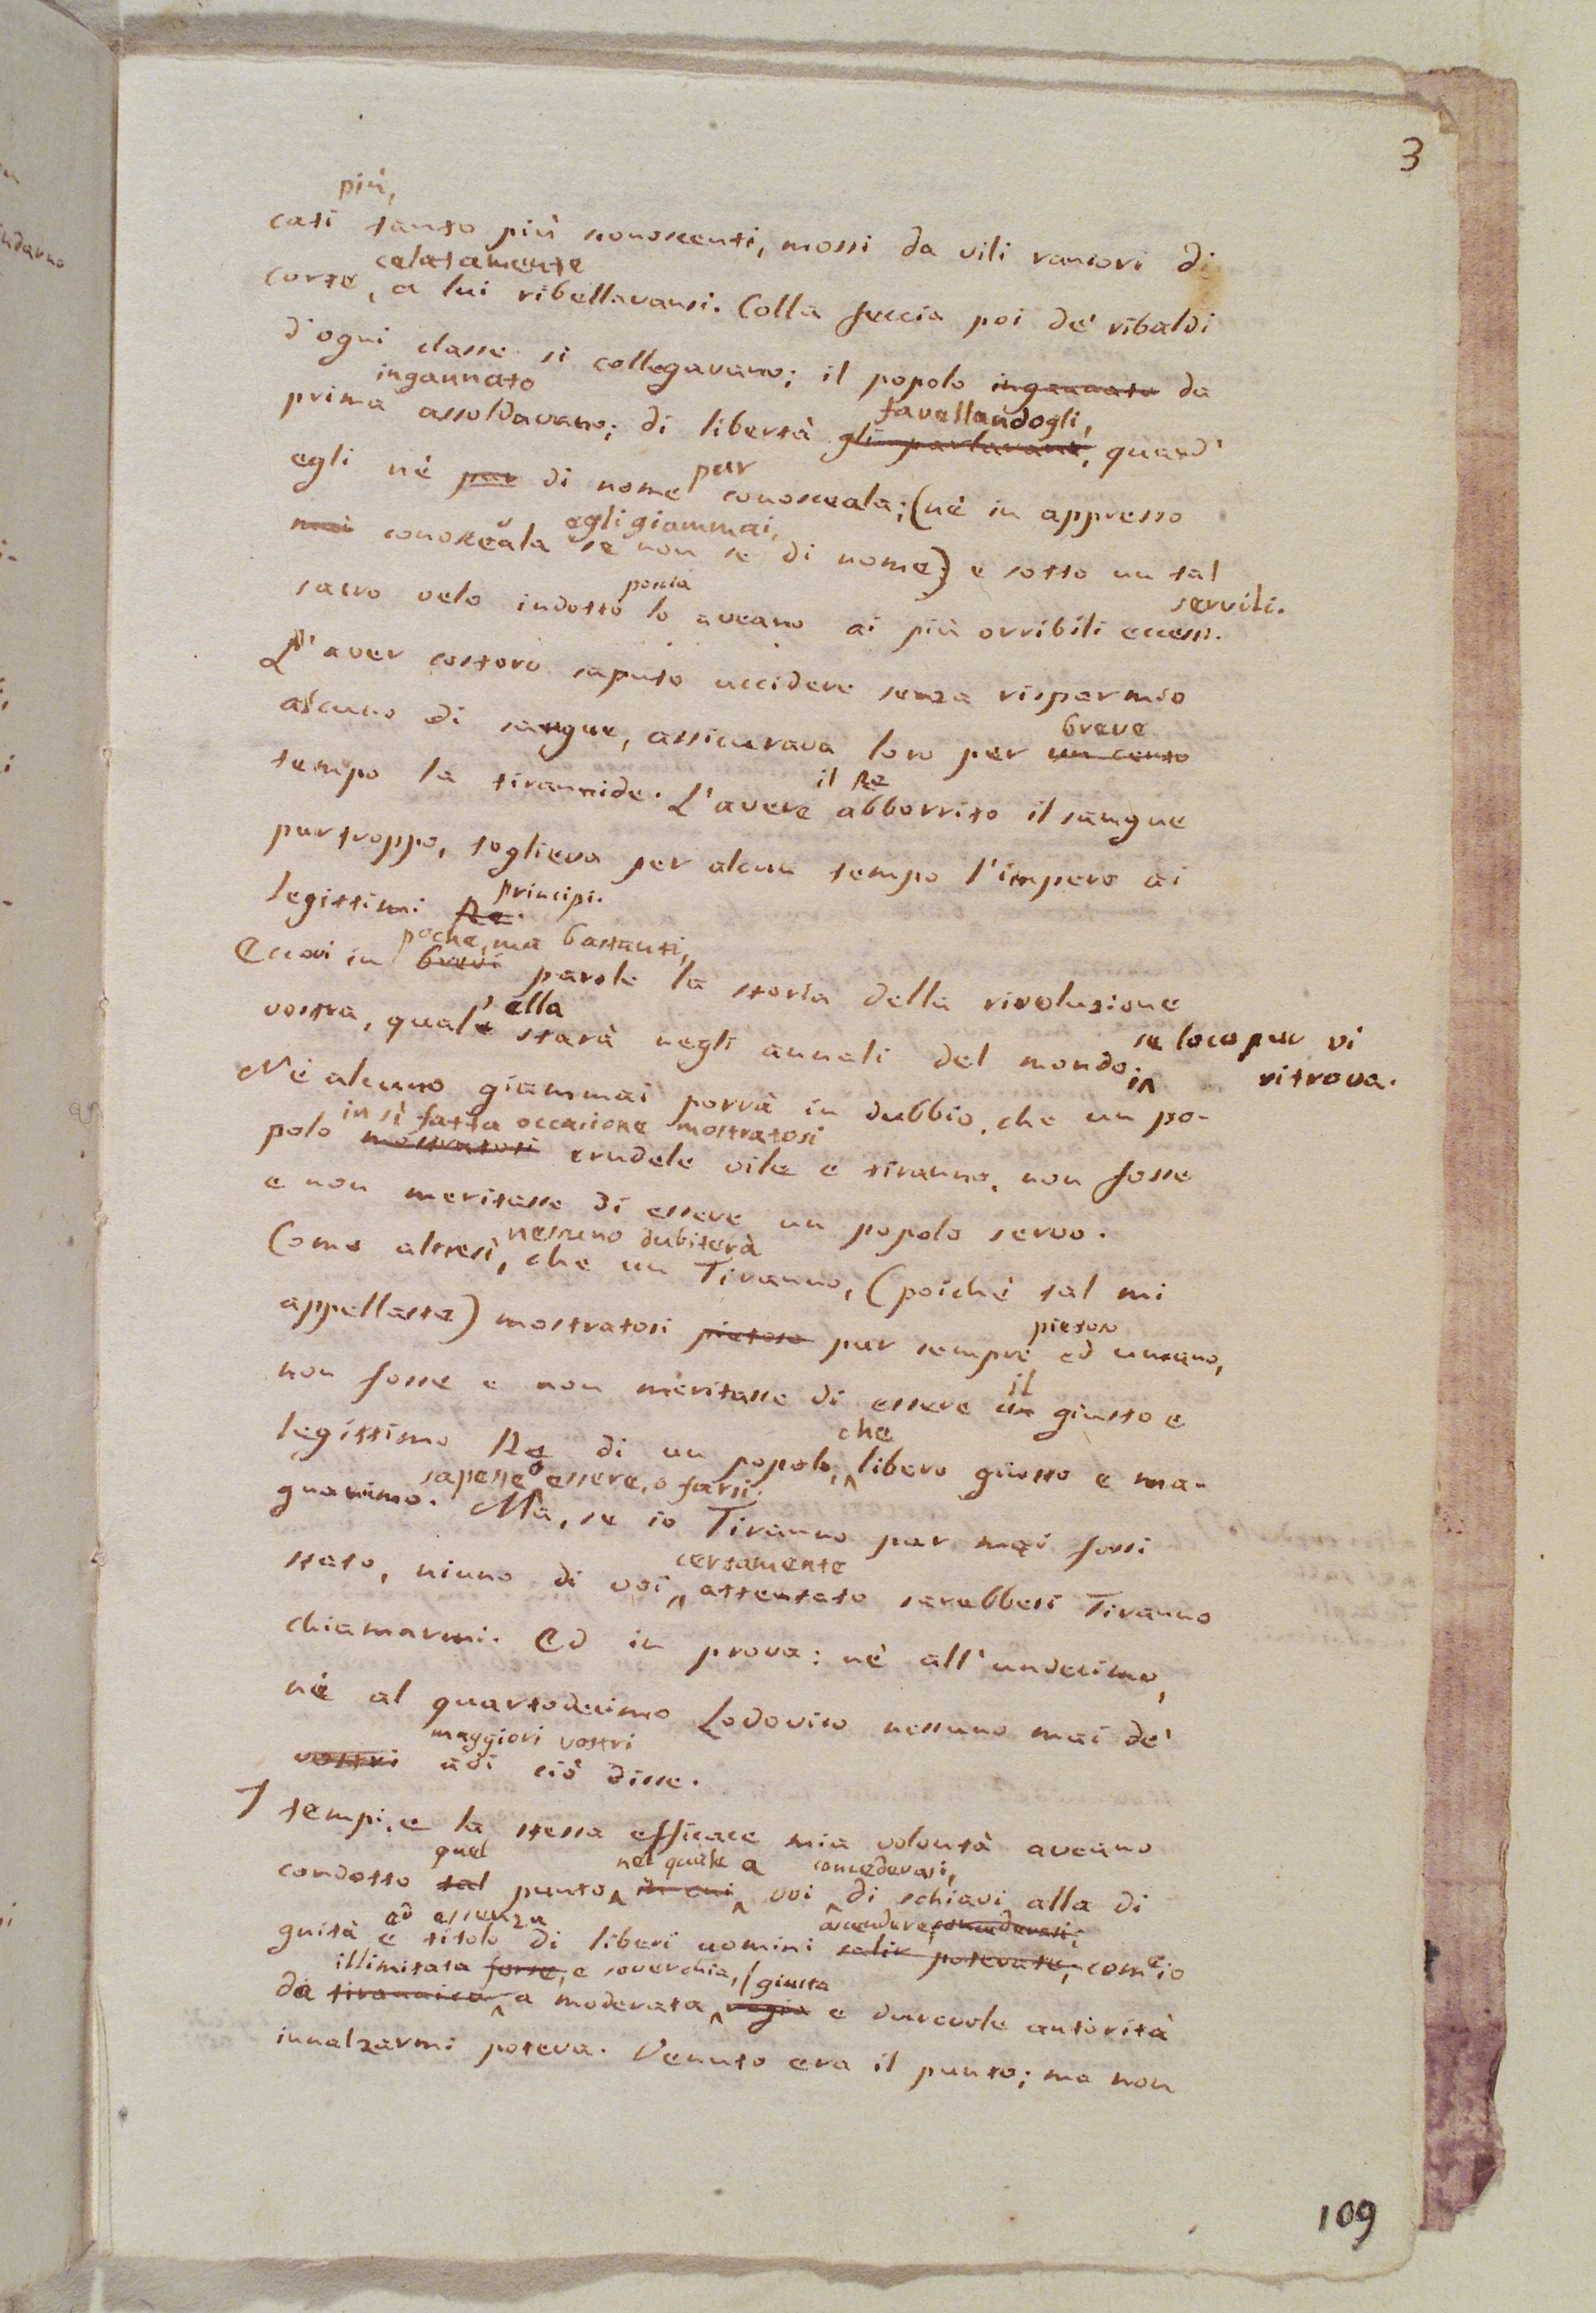 3
più,
cati tanto più sconoscenti, mossi da vili rancori di
celatamente
corte, a lui ribellavansi. Colla feccia poi de' ribaldi
d'ogni classe si collegavano; il popolo ingannato da
ingannato
prima assoldavano; di libertà gli parlavano, quand'
favellandogli,
egli nè pur di nome pur conosceala; (nè in appresso
mai conosceala se non se di nome) e sotto un tal
egli giammai,
sacro velo indotto poscia lo aveano ai più orribili eccessi.
servili.
L'aver costoro saputo uccidere senza risparmio
alcuno di sangue, assicurava loro per un certo
breve
tempo la tirannide. L'avere il Re abborrito il sangue
purtroppo, toglieva per alcun tempo l'impero ai
legittimi Re. principi.
poche, ma bastanti,
Eccovi in brevi parole la storia della rivoluzione
vostra, qual'e ella starà negli annali del mondo;
se loco pur vi
in ritrova.
Nè alcuno giammai porrà in dubbio, che un po-
in sì fatta occasione mostratosi
polo mostratosi crudele vile e tiranno, non fosse
e non meritasse di essere un popolo servo.
nessuno dubiterà
Come altresì, che un Tiranno, (poichè tal mi
appellaste) mostratosi pietoso pur sempre pietoso ed umano,
non fosse e non meritasse di essere un il giusto e
legittimo Re di un popolo, che libero giusto e ma-
sapesse o essere, o farsi.
gnanimo. Ma, se io Tiranno pur mai fossi
stato, niuno di voi certamente attentato sarebbesi Tiranno
chiamarmi. Ed in prova: nè all'undecimo,
nè al quartodecimo Lodovico nessuno mai de'
maggiori vostri
vostri avi ciò disse.
I tempi, e la stessa efficace mia volontà aveano
quel nel quale a concedevasi,
condotto tal punto, in cui voi di schiavi alla di
ad essenza ascendere concedevasi;
gnità e titolo di liberi uomini salir potevate, com'io
illimitata forse, e soverchia, giusta
da tirannica a moderata regia e durevole autorità
innalzarmi poteva. Venuto era il punto; ma non
109